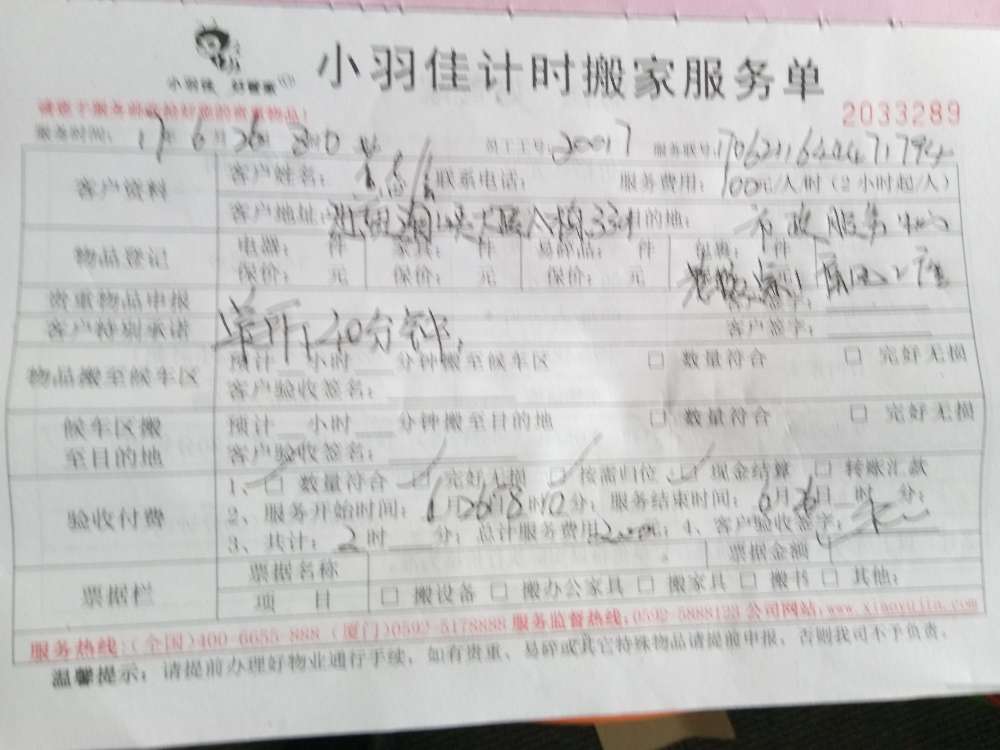 小羽佳计时搬家服务单
小羽佳 好管家
2033289
请徒于服务前收拾好您的贵重物品！
服务时间： 17年6月26日8时10分 员工工号：20017 服务联号：
客户资料 客户姓名： 联系电话： 服务费用：100元/人/时（2小时起/人）
客户地址： 目的地：市政服务中心
物品登记 电器： 件 家具： 件 易碎品： 件 包裹： 件
保价： 元 保价： 元 保价： 元
贵重物品申报
客户特别承诺 单所；40分钟； 客户签字：
物品搬至候车区 预计 小时 分钟搬至候车区 □ 数量符合 □ 完好无损
客户验收签名：
候车区搬至目的地 预计 小时 分钟搬至目的地 □ 数量符合 □ 完好无损
客户验收签名：
验收付费 1、□ 数量符合 □ 完好无损 □ 按需归位 □ 现金结算 □ 转账汇款
2、服务开始时间：6月26日8时10分；服务结束时间：6月26日 时 分；
3、共计：2时 分；总计服务费用200元；4、客户验收签字：
票据栏 票据名称 票据金额
项 目 □ 搬设备 □ 搬办公家具 □ 搬家具 □ 搬书 □ 其他：
服务热线：（全国）400-6655-888（厦门）0592-5178888 服务监督热线：0592-5888123 公司网站：www.xiaoyujia.com
温馨提示：请提前办理好物业通行手续，如有贵重、易碎或其它特殊物品请提前申报，否则我司不予负责。